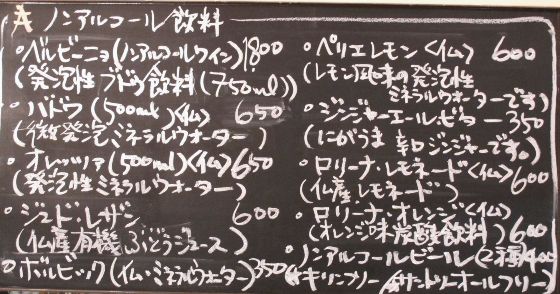 A ノンアルコール飲料
・ベルビーニョ(ノンアルコールワイン)1800
(発泡性ブドウ飲料(750ml))
・バドワ(500ml)<仏> 650
(微発泡ミネラルウォーター)
・オレッツァ(500ml)<仏>650
(発泡性ミネラルウォーター)
・ジュ・ド・レザン 600
(仏産有機ぶどうジュース)
・ボルビック(仏・ミネラルウォーター)350
・ペリエレモン<仏> 600
(レモン風味の発泡性
ミネラルウォーターです)
・ジンジャーエールビター 350
(にがうま辛口ジンジャーです。)
・ロリーナ・レモネード<仏>600
(仏産レモネード)
・ロリーナ・オレンジ<仏>
(オレンジ味炭酸飲料)600
・ノンアルコールビール(2種)400
(キリンフリー サントリーオールフリー)